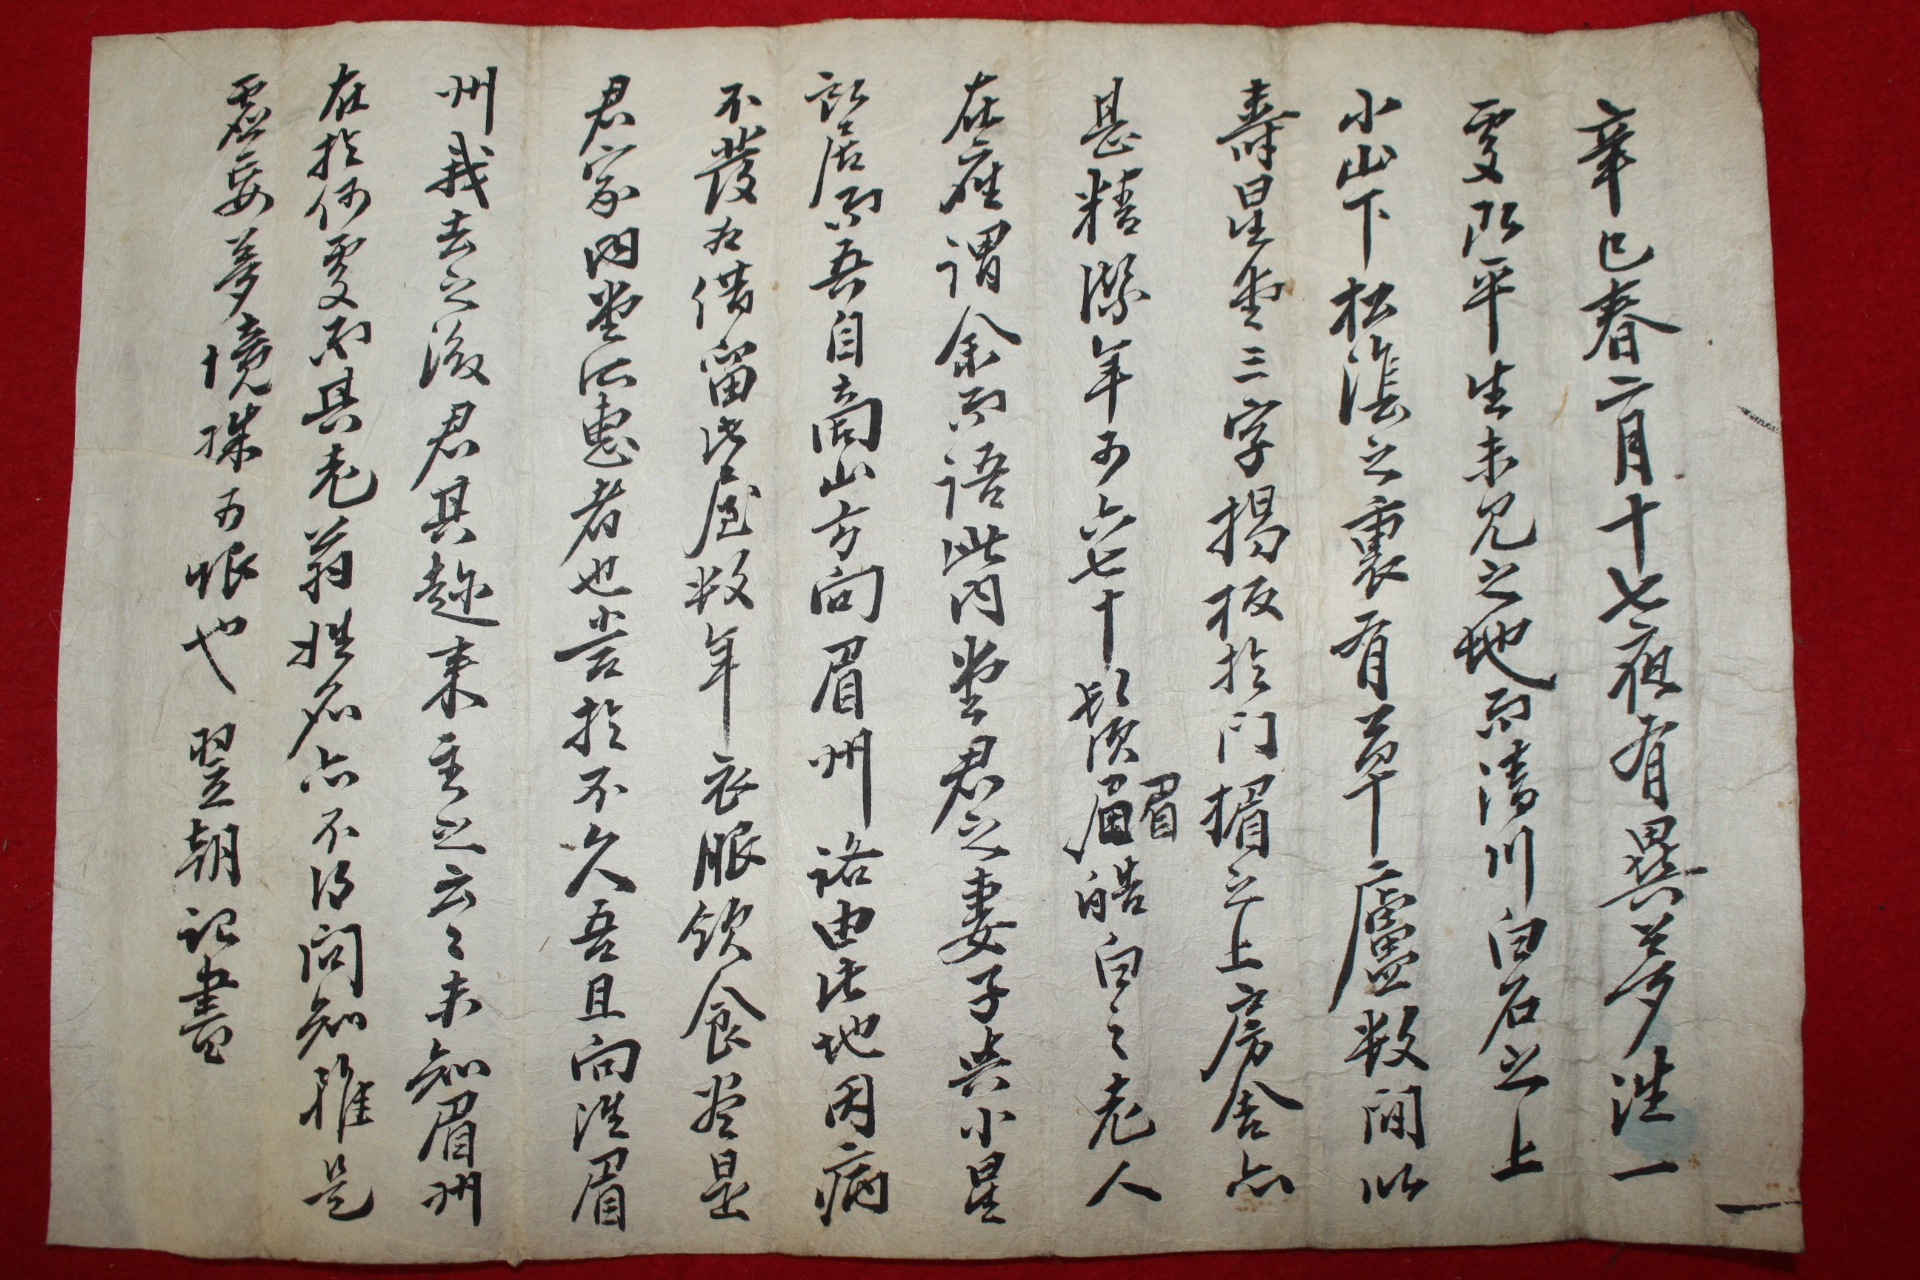 辛巳春二月十七夜有異夢造一
處所平生未見之地而淸川白石之上
小山下松陰之裏有草廬數間以
壽星堂三字揭板於門楣之上房舍亦
甚精潔年可六七十鬚須眉眉皓白之老人
在座謂余而語此內堂君之妻子與小星
所居而吾自商山方向眉州路由此地因病
不發右借留此屋數年衣服飮食若是
君家內堂所惠者也苦於不久吾且向往眉
州我去之後君其趁來主之云々未知眉州
在於何處而其老翁姓名亦不得問知雖是
虛妄夢境殊可恨也 翌朝記書